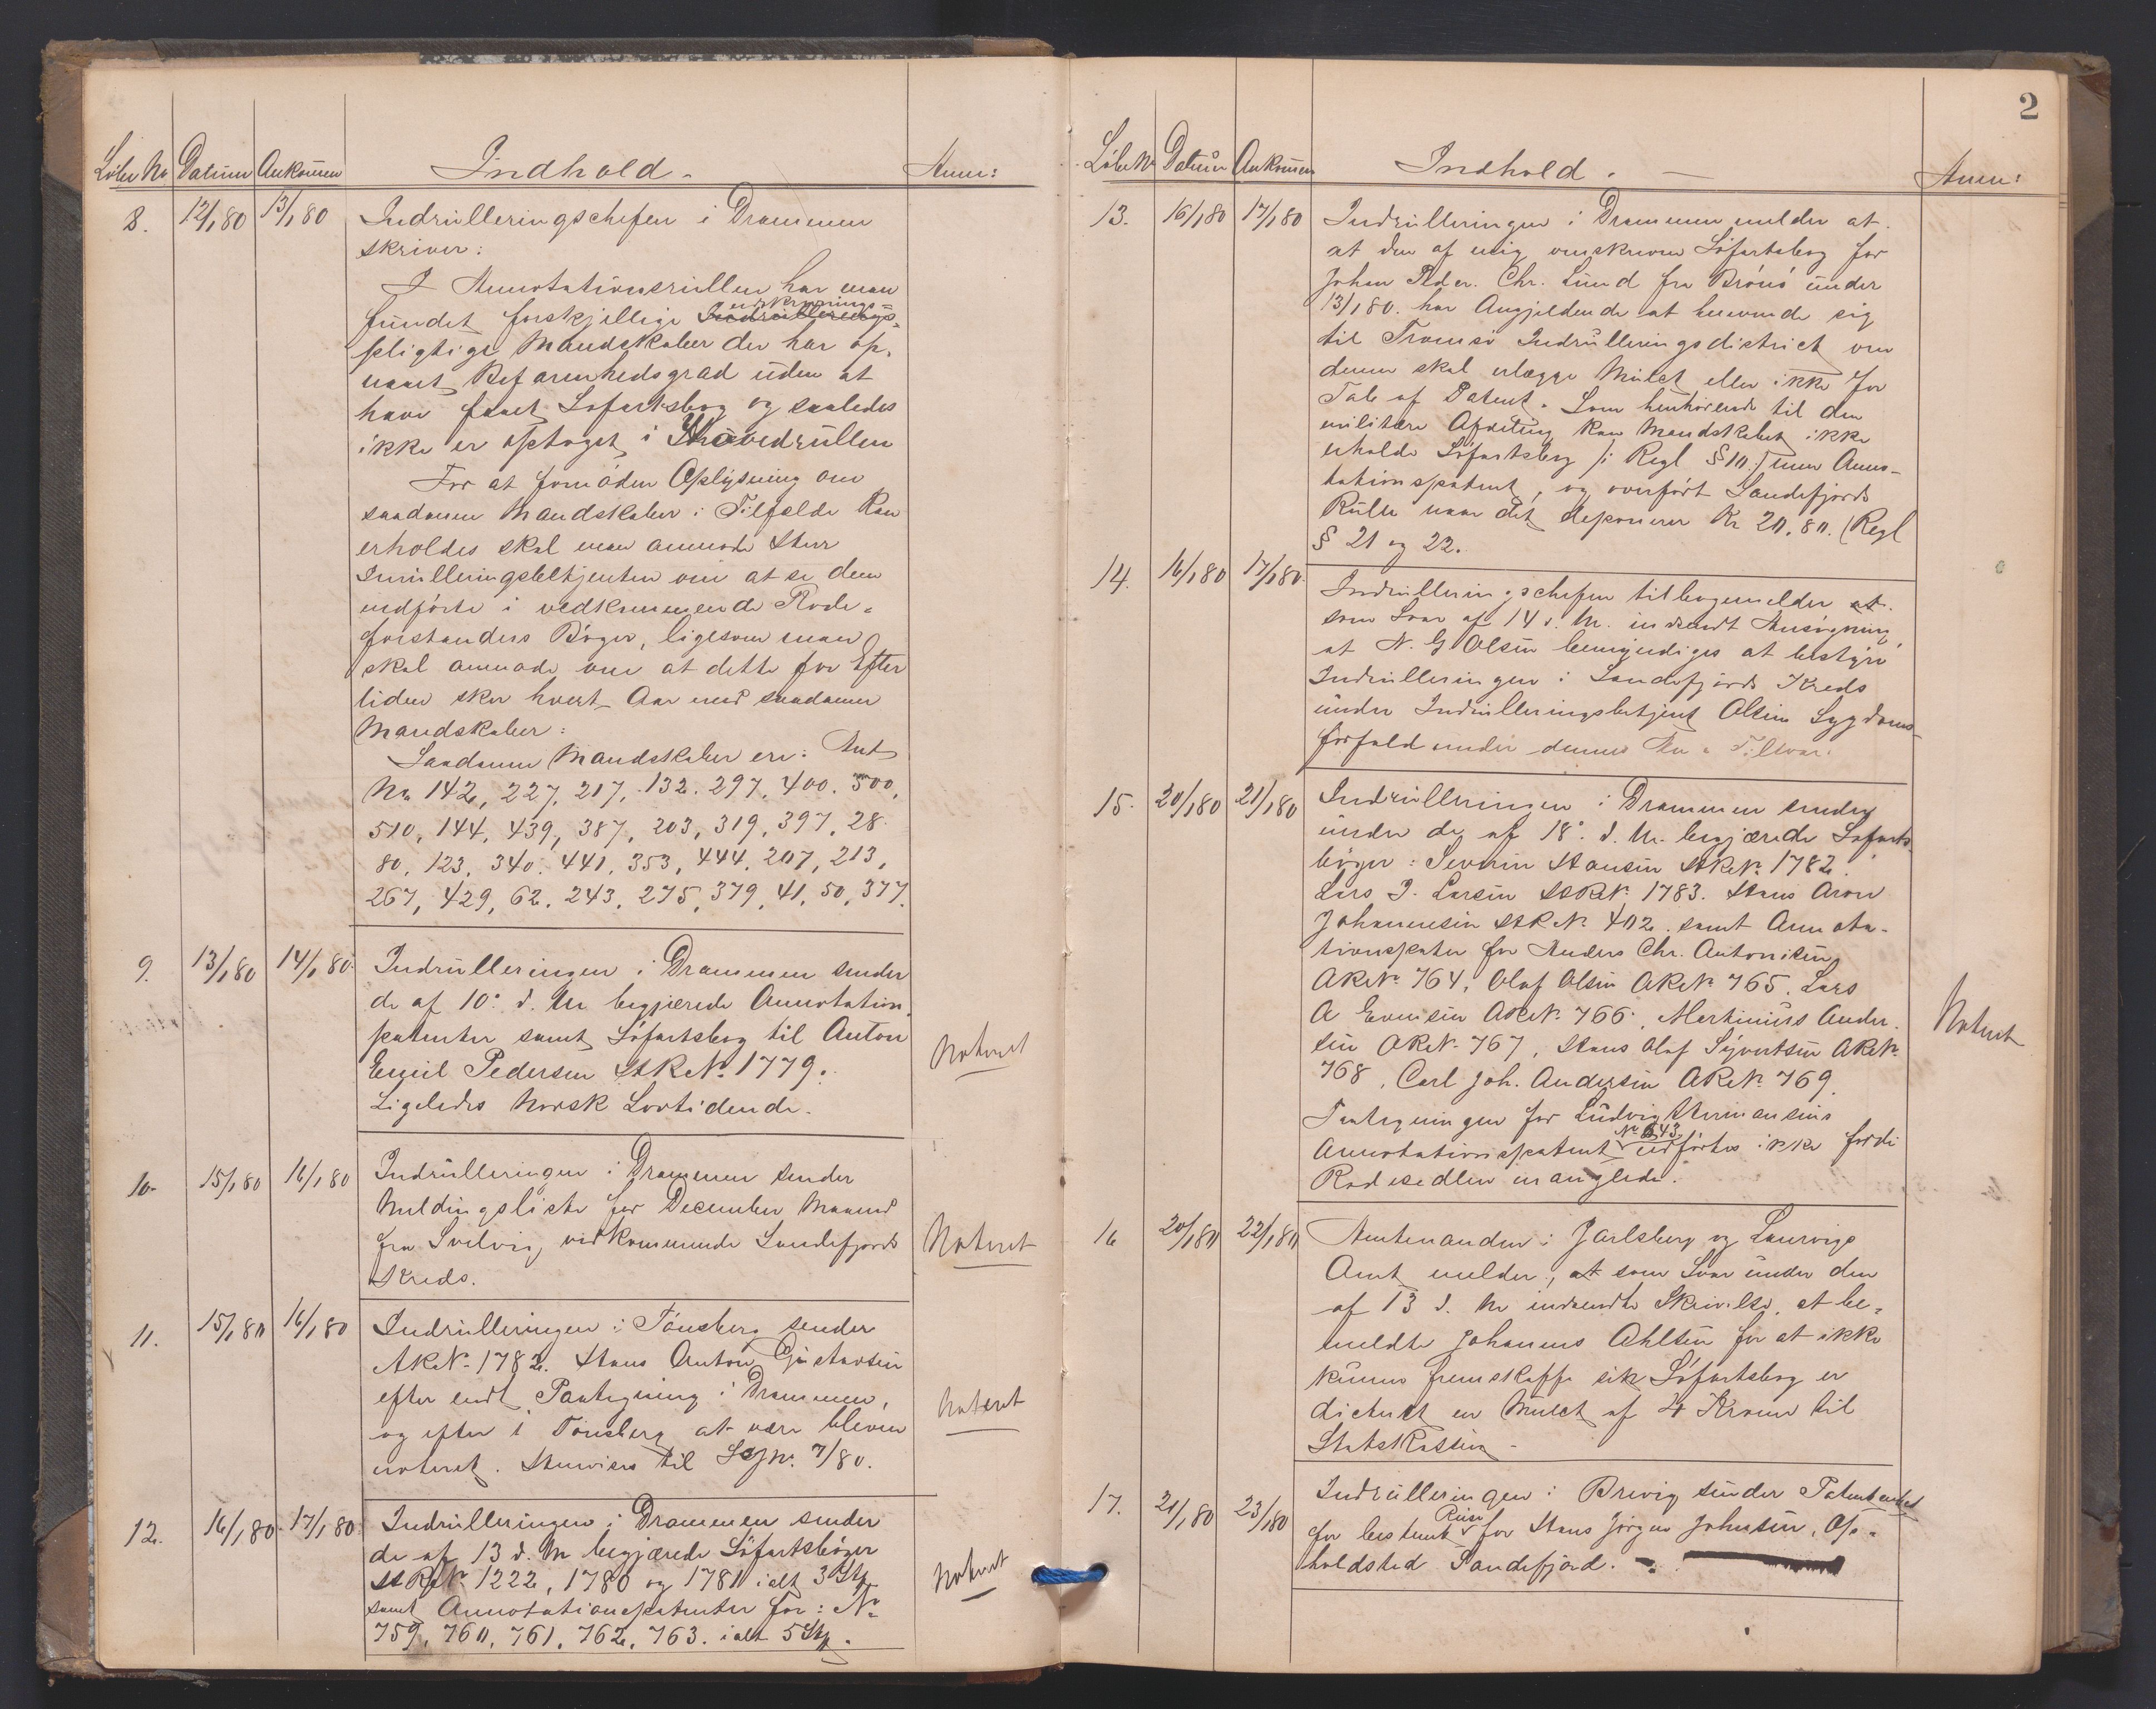 Löbe No Datum Ankommen Indhold. Anm:
8. 12/1 80 13/1 80 Indrulleringschefen i Drammen
skriver:
I Annotationsrullen har man
fundet forskjellige udskrivnings-
pligtige Mandskaber der har op-
naaet Befarenhedsgrad uden at
have faaet Søfartsbog og saaledes
ikke er optaget i Hovedrullen
For at fornöden Oplysning om
saadanne Mandskaber i Tilfælde kan
erholdes skal man anmode Herr
Inrulleringsbetjenten om at se dem
indförte i vedkommende Rode-
forstanders Böger, ligesom man
skal anmode om at dette for Efter
tiden sker hvert Aar med saadanne
Mandskaber:
Saadanne Mandskaber ere: Ant
No 142, 227, 217, 132. 297, 400. 500,
510, 144, 439, 387, 203, 319, 397, 28
80, 123, 340. 441, 353, 444, 207, 213,
267, 429, 62. 243, 275, 379, 41, 50, 377.
9. 13/1 80 14/1 80. Indrulleringen i Drammen sender
de af 10. d. M. begjærede Annotation
patenter samt Söfartsbog til Anton
Emil Pedersen HRNo. 1779.
Ligeledes Norsk Lovtidende.
Noteret
10. 15/1 80 16/1 80 Indrulleringen i Drammen sender
Meldingsliste for December Maaned
fra Svelvig vedkommende Sandefjords
Kreds.
Noteret
11. 15/1 80 16/1 80 Indrulleringen i Tönsberg sender
ARNo. 1782. Hans Anton Gustavsen
efter endt Paategning i Drammen,
og efter i Tönsberg at være bleven
noteret. Henvises til LNo. 7/80.
Noteret
12. 16/1 80 17/1 80 Indrulleringen i Drammen sender
de af 13 d. M begjærede Söfartsböger
HRNo 1222, 1780 og 1781 ialt 3 Stk
samt Annotationspatenter for: No
759, 760, 761, 762, 763. ialt 5 Stk.
Noteret
2
Löbe No Datum Ankommen Indhold. Anm:
13. 16/1 80 17/1 80 Indrulleringen i Drammen melder at
at den af mig omskrevne Söfartsbog for
Johan Peder. Chr. Lund fra Brönö under
13/1 80. har Angjeldende at henvende sig
til Tromsö Indrulleringsdistrict om
denne skal erlægge Mulct eller ikke for
Tab af Patent. Som henhörende til den
militære Afdeling kan Mandskabet ikke
erholde Söfartsbog /: Regl §10./ men Anno-
tationspatent, og overfört Sandefjords
Rulle naar det deponerer Kr 20,80. (Regl
§ 21 og 22.
14. 16/1 80 17/1 80. Indrulleringschefen tilbagemelder at
som Svar af 14 d. M. indsendt Ansögning
at N. G Olsen bemyndiges at bestyre
Indrulleringen i Sandefjords Kreds
under Indrulleringsbetjent Olsens Sygdoms-
forfald under dennes An & Tilsvar.
15. 20/1 80 21/1 80 Indrulleringen i Drammen sender
under de af 18. d. M. begjærede Söfarts-
böger: Severin Hansen HRNo. 1782.
Lars J. Larsen HRNo. 1783. Hans Aron
Johannesen HRNo. 402. samt Annota-
tionspaten for Anders Chr. Antonisen
ARNo. 764, Olaf Olsen ARNo. 765. Lars
A Evensen ARNo. 766, Martinius Ander-
sen ARNo. 767, Hans Olaf Syvertsen ARNo.
768, Carl Joh. Andersen ARNo. 769.
Paategningen for Ludvig Hermansens
Annotationspatent No 643 udförtes ikke fordi
Rodesedlen manglede.
Noteret
16 20/1 80 22/1 80 Amtmanden i Jarlsberg og Laurvigs
Amt melder, at som Svar under den
af 13 d. M indsendte Skrivelse, at be-
meldte Johannes Ahlsen for at ikke
kunne fremskaffe sin Söfartsbog er
dicteret en Mulct af 4 Kroner til
Statskassen.
17. 21/1 80 23/1 80 Indrulleringen i Brevig sender Patentenhed
for bestemt Reise for Hans Jörgen Johnsen, Op-
holdsted Sandefjord.